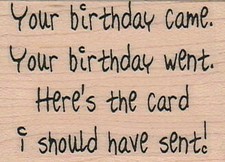 Your birthday came.
Your birthday went.
Here's the card
i should have sent!